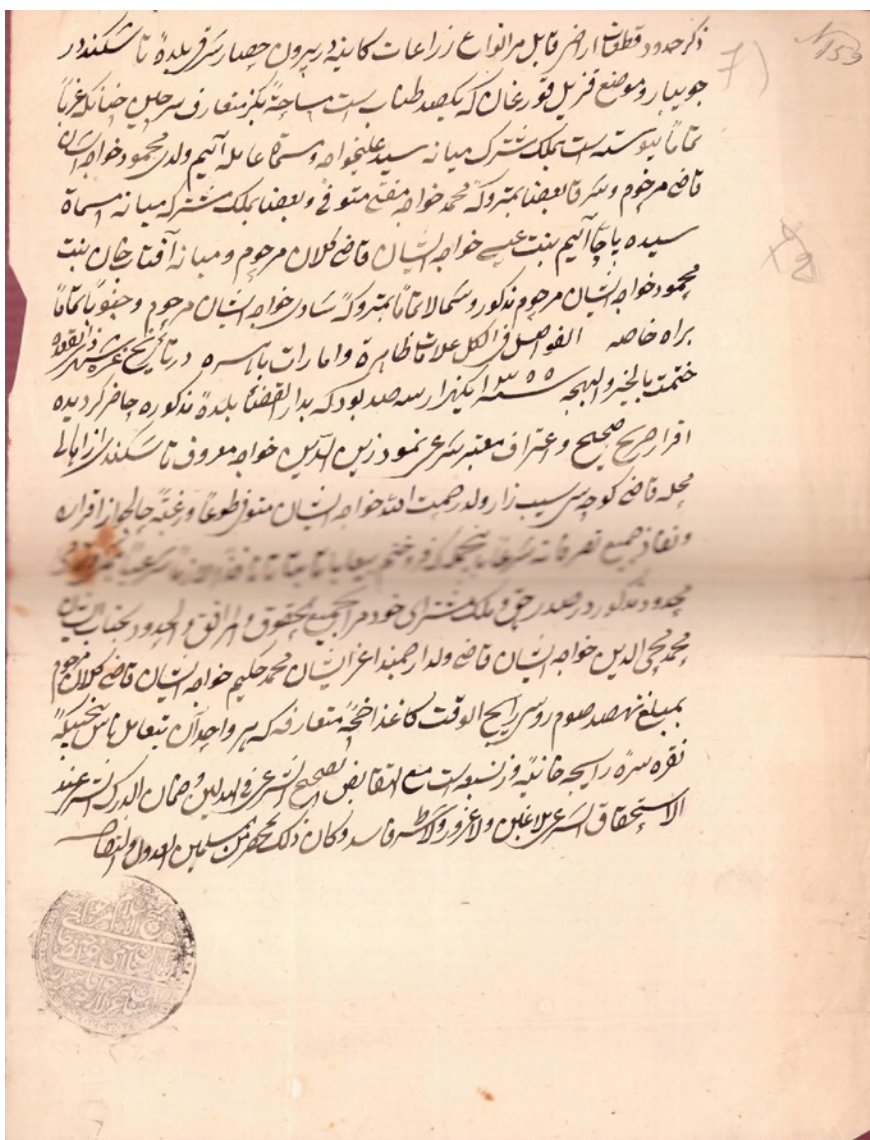 ذکر حدود قطعات اراضی قابل مر انواع زراعات کاینه در بیرون حصار شرقی بلدهٔ تاشکند در
جویبار و موضع قزیل قورغان که یکصد طناب است مساحةً بکز متعارف سرجلین چنانکه غرباً
تماماً پیوسته است بملک مشترک میانه سید علیخواجه و مسماة عایله آئیم ولدی محمود خواجه ایشان
قاضی مرحوم و شرقا بعضنا بمتروکهٔ محمد خواجه مفتی متوفی و بعضنا بملک مشترکه میانه مسماة
سیده پاچا آئیم بنت عیسی خواجه ایشان قاضی کلان مرحوم و میانه آفتاب خان بنت
محمود خواجه ایشان مرحوم مذکور و شمالا تماماً بمتروکهٔ شادی خواجه ایشان مرحوم و جنوباً تماماً
براه خاصه الفواصل فی الکل علامات ظاهرة و امارات باهره در تاریخ غره شهر ذی القعده
ختمت بالخیر و البهجه ۱۳۰۰ یکهزار سه صد بود که بدار القضاء بلدهٔ مذکوره حاضر کردیده
اقرار صریح صحیح و اعتراف معتبر شرعی نمود زین الدین خواجه معروف تاشکندی از اهالی
محله قاضی کوچه سی سیب زار ولد رحمت الله خواجه ایشان متوفی طوعاً و رغبةً حال جواز اقراره
و نفاذ جمیع تصرفاته شرعا باینجمله که فروختم بیعا باتا
محدود مذکور در صدر حق و ملک مشترای خود مرا بجمیع الحقوق و المرافق و الحدود بجناب ایشان
محمد محی الدین خواجه ایشان قاضی ولد ارجمند اعز ایشان محمد حکیم خواجه ایشان قاضی کلان مرحوم
بمبلغ نهصد صوم روسی رایج الوقت کاغذ متعارفه که هر واحد آن بتعامل ناس پنج تنکهٔ
نقره سره رایجه خانیه وزنسبعه است مع التقابض الصحیح الشرعی فی البدلین و ضمان الدرک الشرعی عند
الاستحقاق الشرعی بلا غبن و لا غرور و لا شرط فاسد و کان ذلک بمحضر من المسلمین العدول و الثقات
N 153
7)